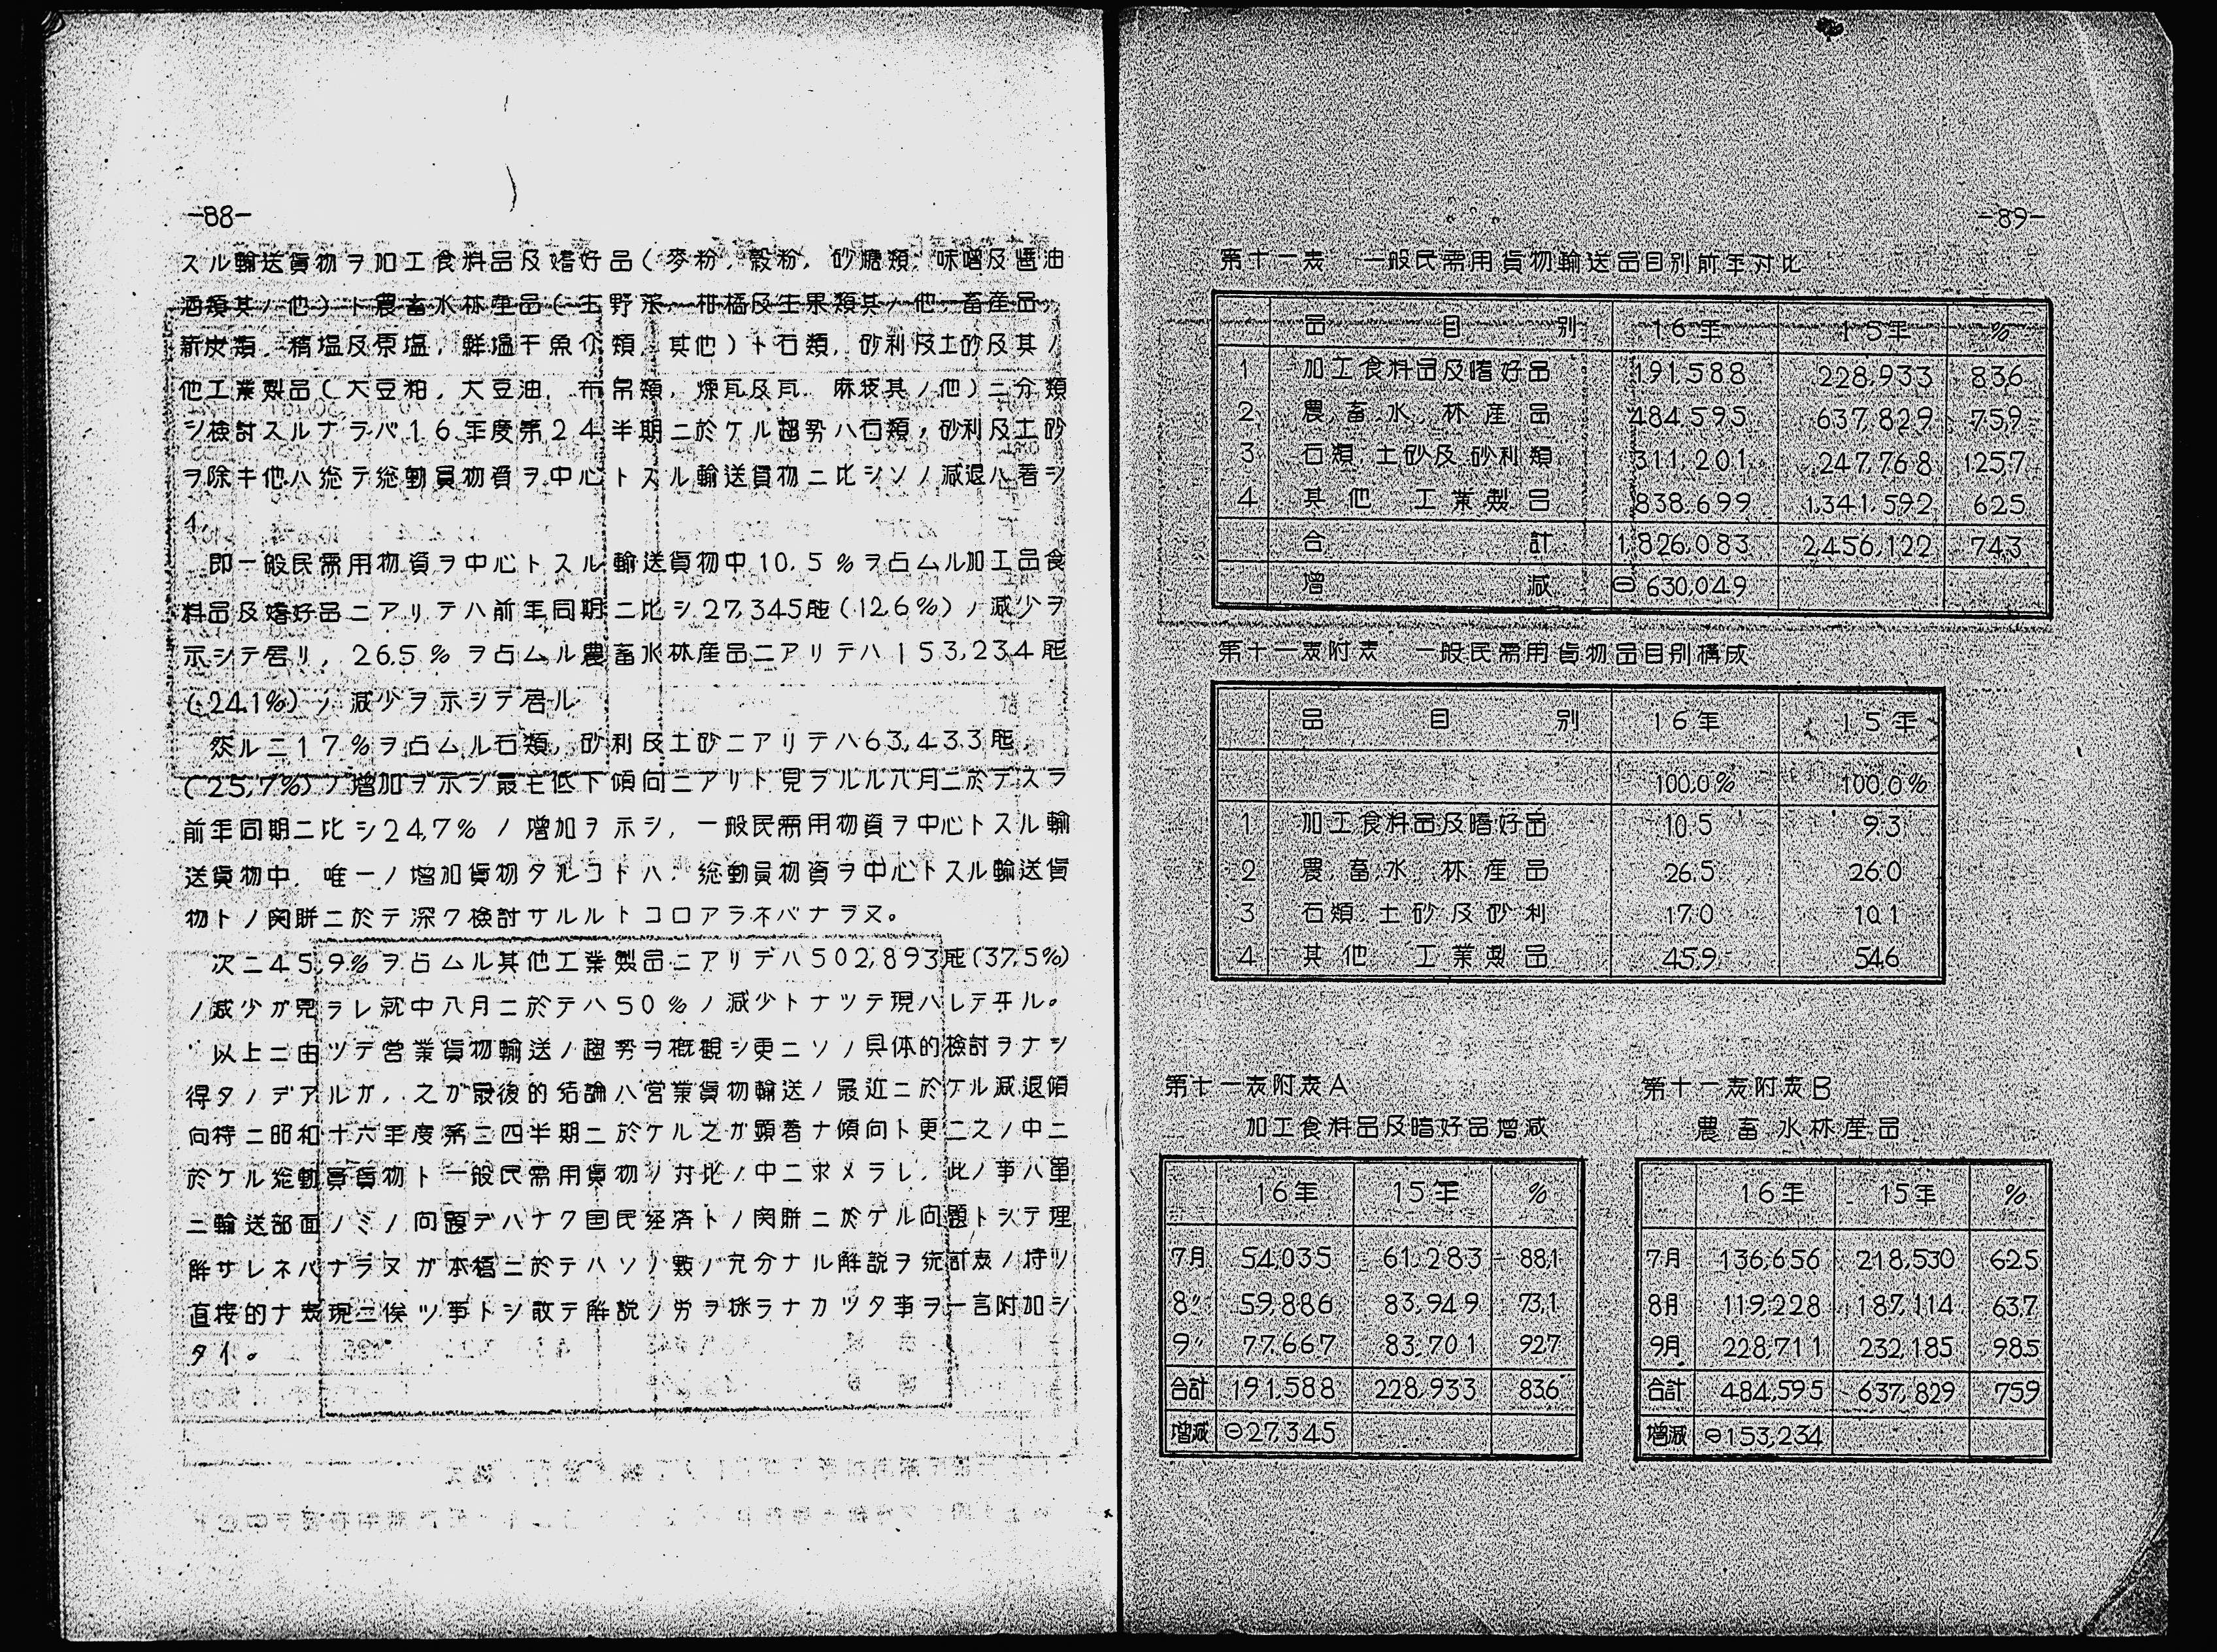 -88-
スル輸送貨物ヲ加工食料品及嗜好品(麥粉,穀粉,砂糖類,味噌及醬油
酒類其ノ他)ト農畜水林産品(生野菜,柑橘及生果類其ノ他,畜産品,
薪炭類,精塩及原塩,鮮塩干魚介類,其他)ト石類,砂利及土砂及其ノ
他工業製品(大豆粕,大豆油,布帛類,煉瓦及瓦,麻袋其ノ他)ニ分類
シ検討スルナラバ16年度第24半期ニ於ケル趨勢ハ石類,砂利及土砂
ヲ除キ他ハ総テ総動員物資ヲ中心トスル輸送貨物ニ比シソノ減退ハ著シ
イ.
即一般民需用物資ヲ中心トスル輸送貨物中10.5%ヲ占ムル加工品食
料品及嗜好品ニアリテハ前年同期ニ比シ27,345瓲(12.6%)ノ減少ヲ
示シテ居リ,26.5%ヲ占ムル農畜水林産品ニアリテハ153,234瓲
(24.1%)ノ減少ヲ示シテ居ル
然ルニ17%ヲ占ムル石類,砂利及土砂ニアリテハ63,433瓲,
(25,7%)ノ増加ヲ示シ最モ低下傾向ニアリト見ラルル八月ニ於テスラ
前年同期ニ比シ24,7%ノ増加ヲ示シ,一般民需用物資ヲ中心トスル輸
送貨物中,唯一ノ増加貨物タルコトハ,総動員物資ヲ中心トスル輸送貨
物トノ関聯ニ於テ深ク検討サルルトコロアラネバナラヌ。
次ニ45,9%ヲ占ムル其他工業製品ニアリテハ502,893瓲(37,5%)
ノ減少ガ見ラレ就中八月ニ於テハ50%ノ減少トナツテ現ハレテヰル。
以上ニ由ツテ営業貨物輸送ノ趨勢ヲ概観シ更ニソノ具体的検討ヲナシ
得タノデアルガ,之ガ最後的結論ハ営業貨物輸送ノ最近ニ於ケル減退傾
向特ニ昭和十六年度第二四半期ニ於ケル之ガ顕著ナ傾向ト更ニ之ノ中ニ
於ケル総動員貨物ト一般民需用貨物ノ対比ノ中ニ求メラレ,此ノ事ハ單
ニ輸送部面ノミノ問題デハナク国民経済トノ関聯ニ於ケル問題トシテ理
解サレネバナラヌガ本稿ニ於テハソノ数ノ充分ナル解説ヲ統計表ノ持ツ
直接的ナ表現ニ俟ツ事トシ敢テ解説ノ労ヲ採ラナカツタ事ヲ一言附加シ
タイ。
-89-
第十一表 一般民需用貨物輸送品目別前年対比
品目別 16年 15年 %
1 加工食料品及嗜好品 191,588 228,933 83,6
2 農畜水林産品 484,595 637,829 75,9
3 石類土砂及砂利類 311,201 247,768 125,7
4 其他工業製品 838,699 1,341,592 62,5
合計 1,826,083 2,456,122 74,3
増減 ⊖630,049
第十一表附表 一般民需用貨物品目別構成
品目別 16年 15年
100,0% 100,0%
1 加工食料品及嗜好品 10.5 9.3
2 農畜水林産品 26.5 26.0
3 石類土砂及砂利 17.0 10.1
4 其他工業製品 45.9 54.6
第十一表附表A
加工食料品及嗜好品増減
16年 15年 %
7月 54,035 61,283 88,1
8〃 59,886 83,949 73,1
9〃 77,667 83,701 92,7
合計 191,588 228,933 83,6
増減 ⊖27,345
第十一表附表B
農畜水林産品
16年 15年 %
7月 136,656 218,530 62,5
8月 119,228 187,114 63,7
9月 228,711 232,185 98,5
合計 484,595 637,829 75,9
増減 ⊖153,234